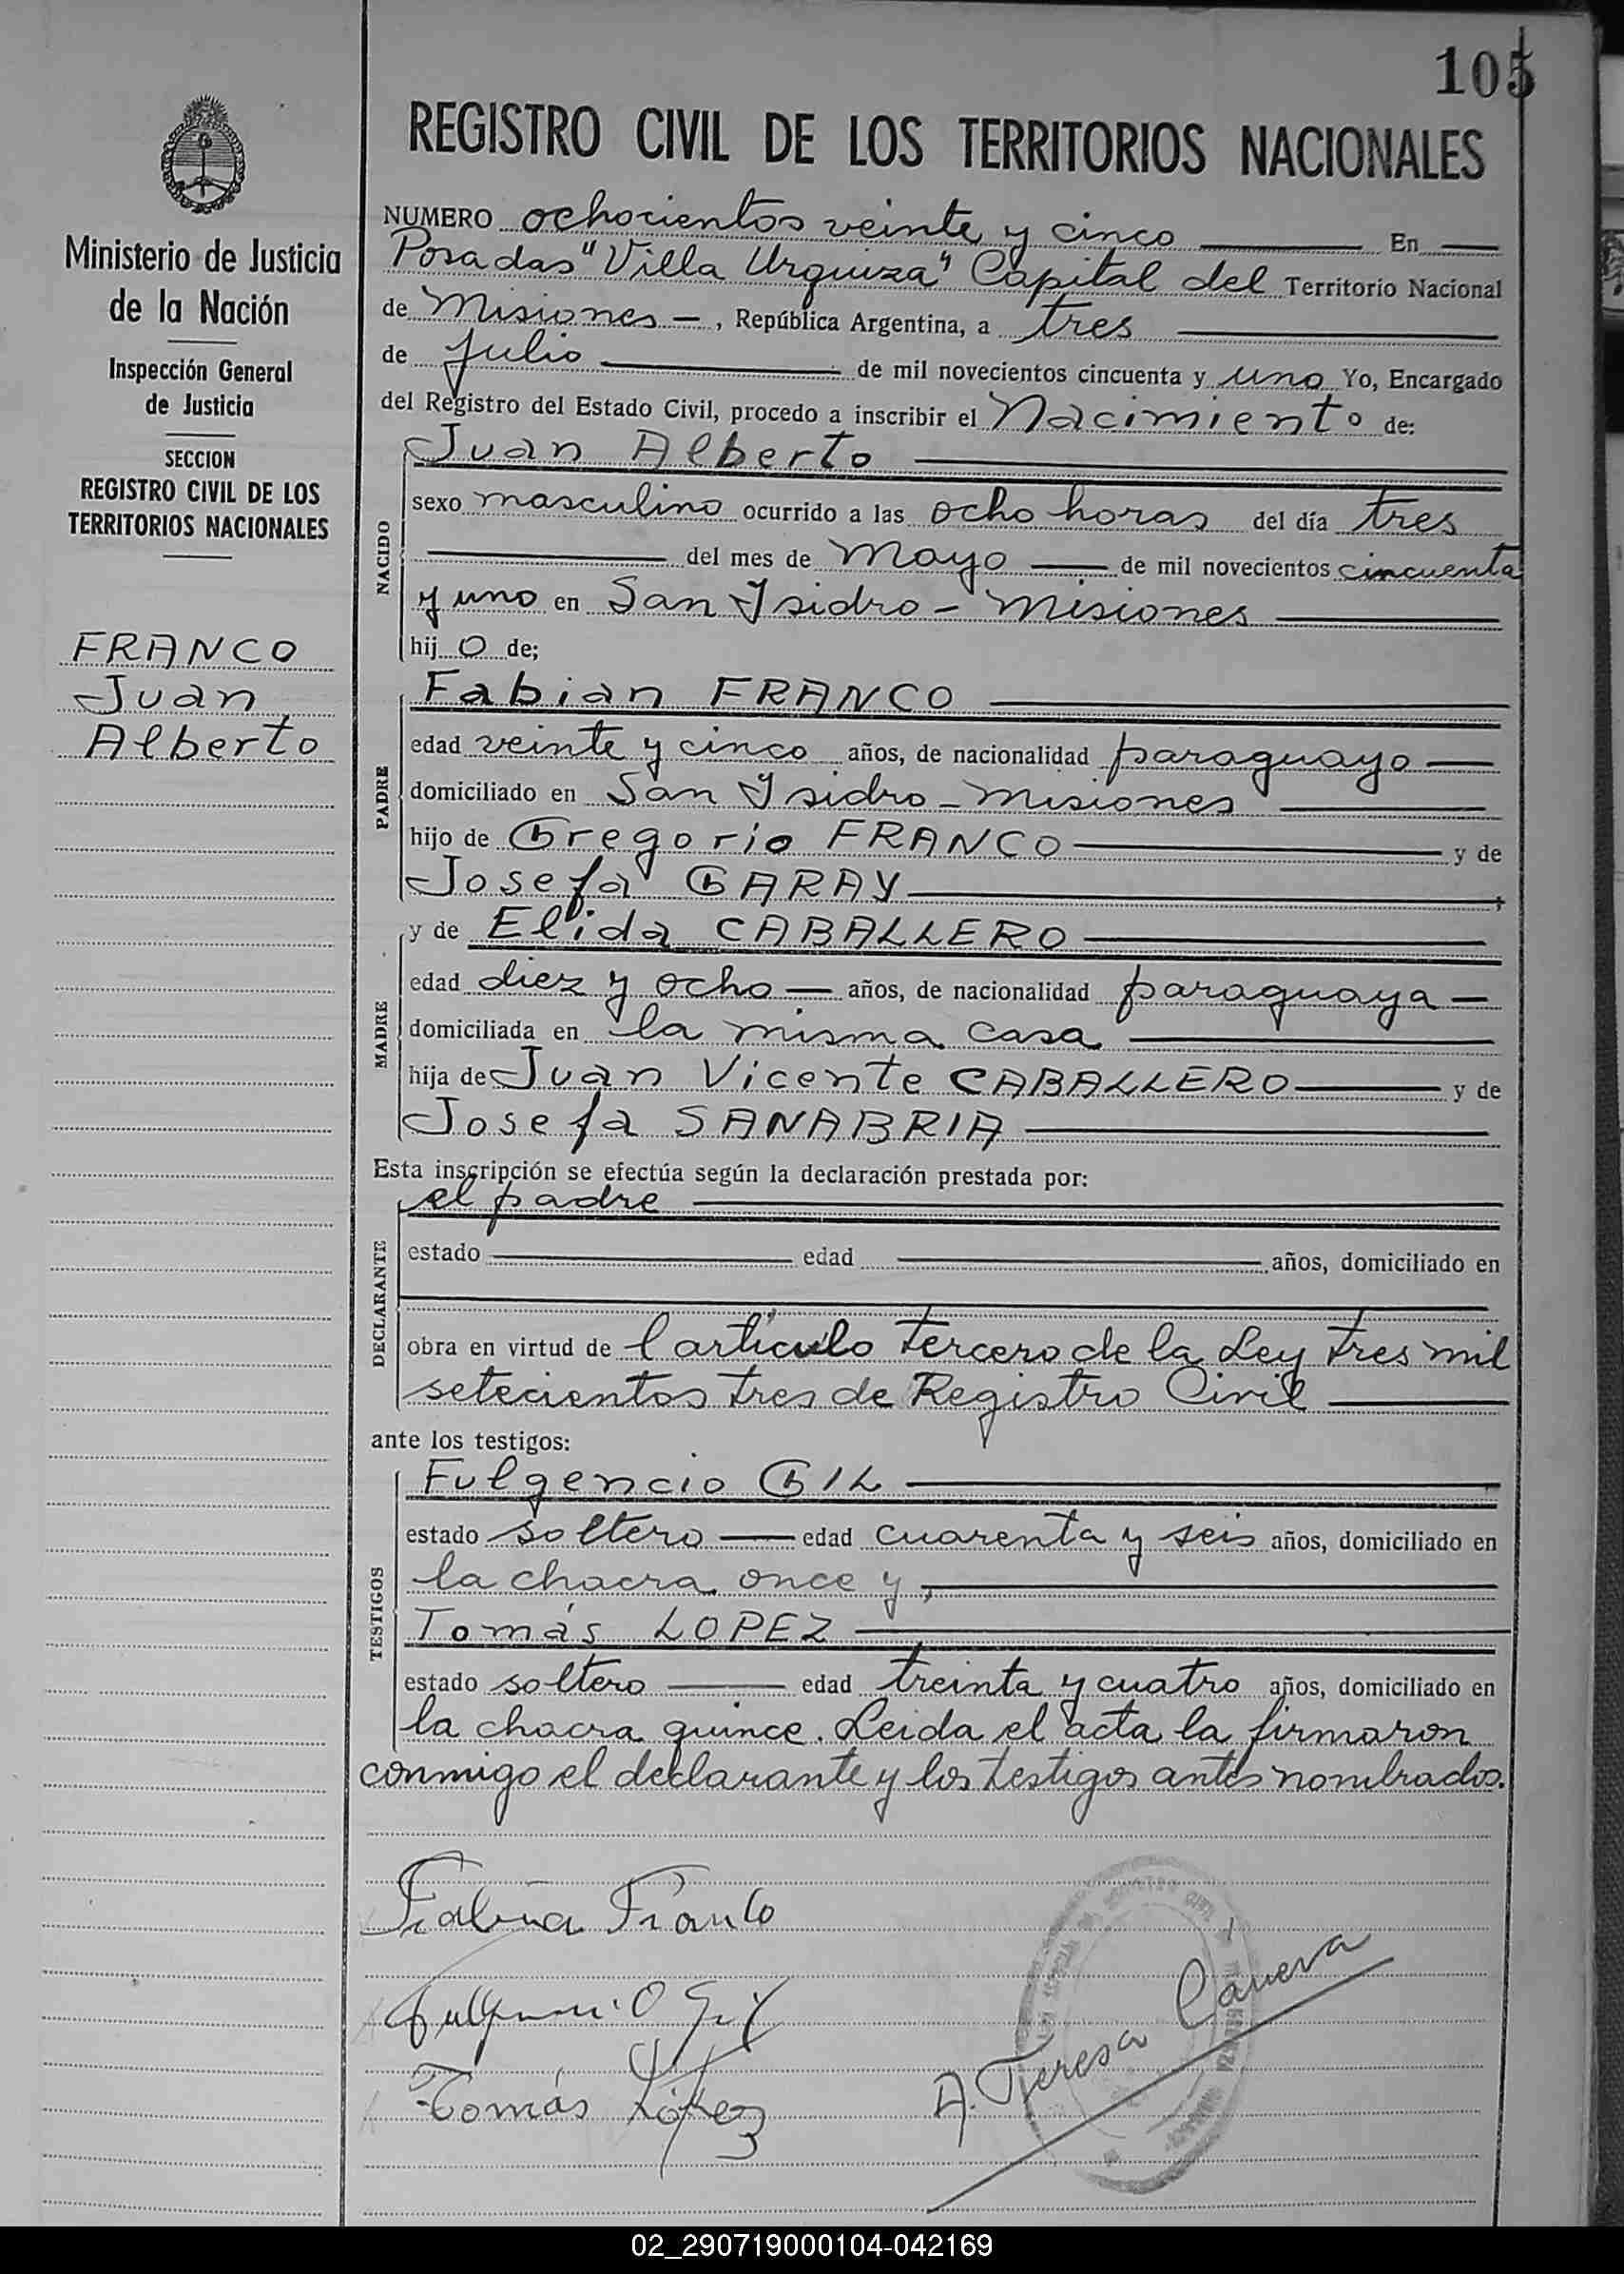 105
REGISTRO CIVIL DE LOS TERRITORIOS NACIONALES
Ministerio de Justicia
de la Nación
Inspección General
de Justicia
SECCION
REGISTRO CIVIL DE LOS
TERRITORIOS NACIONALES
FRANCO
Juan
Alberto
NUMERO ochocientos veinte y cinco En
Posadas "Villa Urquiza" Capital del Territorio Nacional
de Misiones — , República Argentina, a tres
de julio de mil novecientos cincuenta y uno Yo, Encargado
del Registro del Estado Civil, procedo a inscribir el Nacimiento de:
NACIDO
Juan Alberto
sexo masculino ocurrido a las ocho horas del día tres
del mes de mayo — de mil novecientos cincuenta
y uno en San Isidro - Misiones
hij o de;
PADRE
Fabian FRANCO
edad veinte y cinco años, de nacionalidad paraguayo —
domiciliado en San Isidro - Misiones
hijo de Gregorio FRANCO y de
Josefa GARAY
MADRE
y de Elida CABALLERO
edad diez y ocho — años, de nacionalidad paraguaya —
domiciliada en la misma casa
hija de Juan Vicente CABALLERO y de
Josefa SANABRIA
Esta inscripción se efectúa según la declaración prestada por:
DECLARANTE
el padre
estado edad años, domiciliado en
obra en virtud de l artículo tercero de la Ley tres mil
setecientos tres de Registro Civil
ante los testigos:
TESTIGOS
Fulgencio GIL
estado soltero — edad cuarenta y seis años, domiciliado en
la chacra once y,
Tomás LOPEZ
estado soltero — edad treinta y cuatro años, domiciliado en
la chacra quince. Leida el acta la firmaron
conmigo el declarante y los testigos antes nombrados.
Franco
Tomás López
A. Teresa Canera
02_290719000104-042169